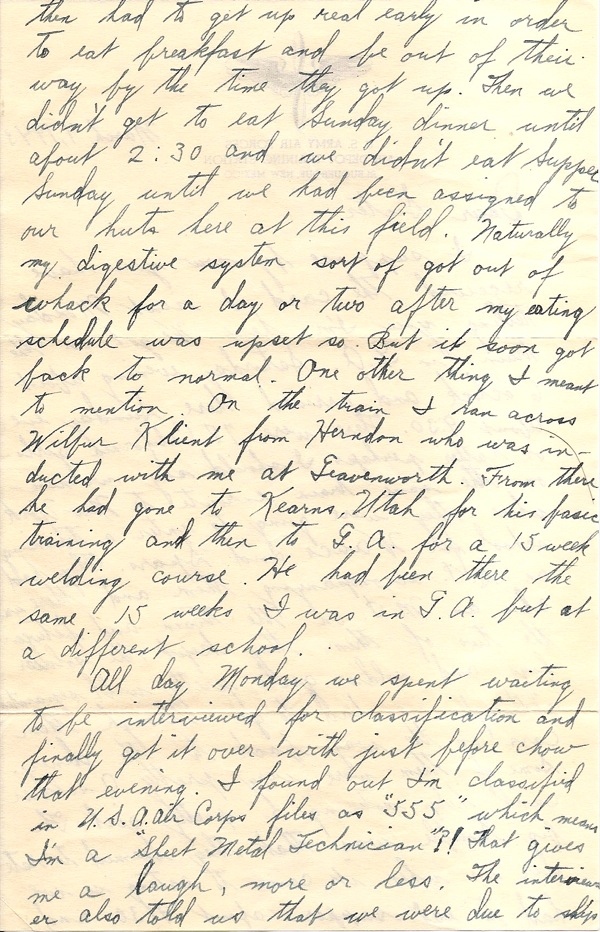 then had to get up real early in order
to eat breakfast and be out of their
way by the time they got up. Then we
didn't get to eat Sunday dinner until
about 2:30 and we didn't eat supper
Sunday until we had been assigned to
our huts here at this field. Naturally
my digestive system sort of got out of
whack for a day or two after my eating
schedule was upset so. But it soon got
back to normal. One other thing I meant
to mention. On the train I ran across
Wilbur Klient from Herndon who was in-
ducted with me at Leavenworth. From there
he had gone to Kearns, Utah for his basic
training and then to L.A. for a 15 week
welding course. He had been there the
same 15 weeks I was in L.A. but at
a different school.
All day Monday we spent waiting
to be interviewed for classification and
finally got it over with just before chow
that evening. I found out I'm classified
in U.S.A. Air Corps files as "555" which means
I'm a "Sheet Metal Technician"?! That gives
me a laugh, more or less. The interview-
er also told us that we were due to ship